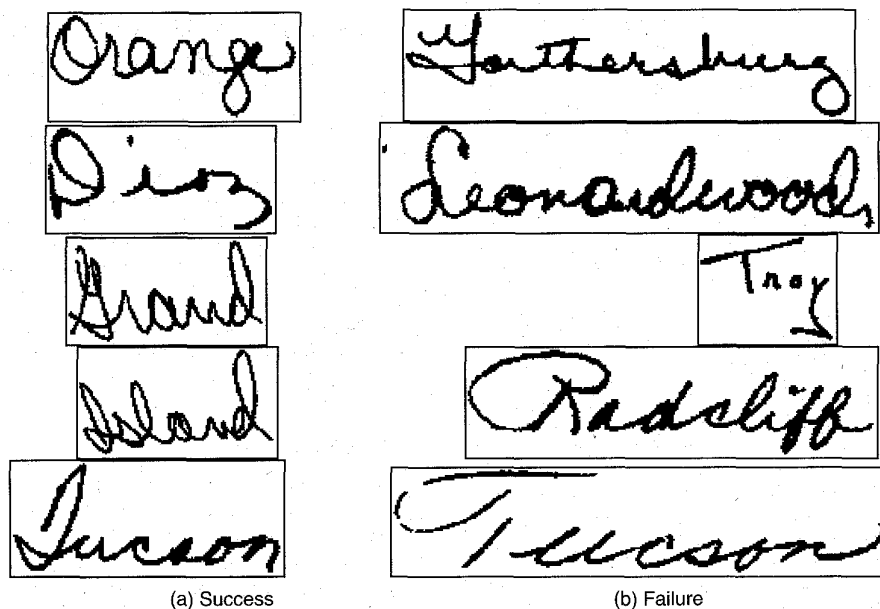 Orange
Diaz
Grand
Island
Tucson
(a) Success
Gaithersburg
Leonardwood
Troy
Radcliff
Tucson
(b) Failure